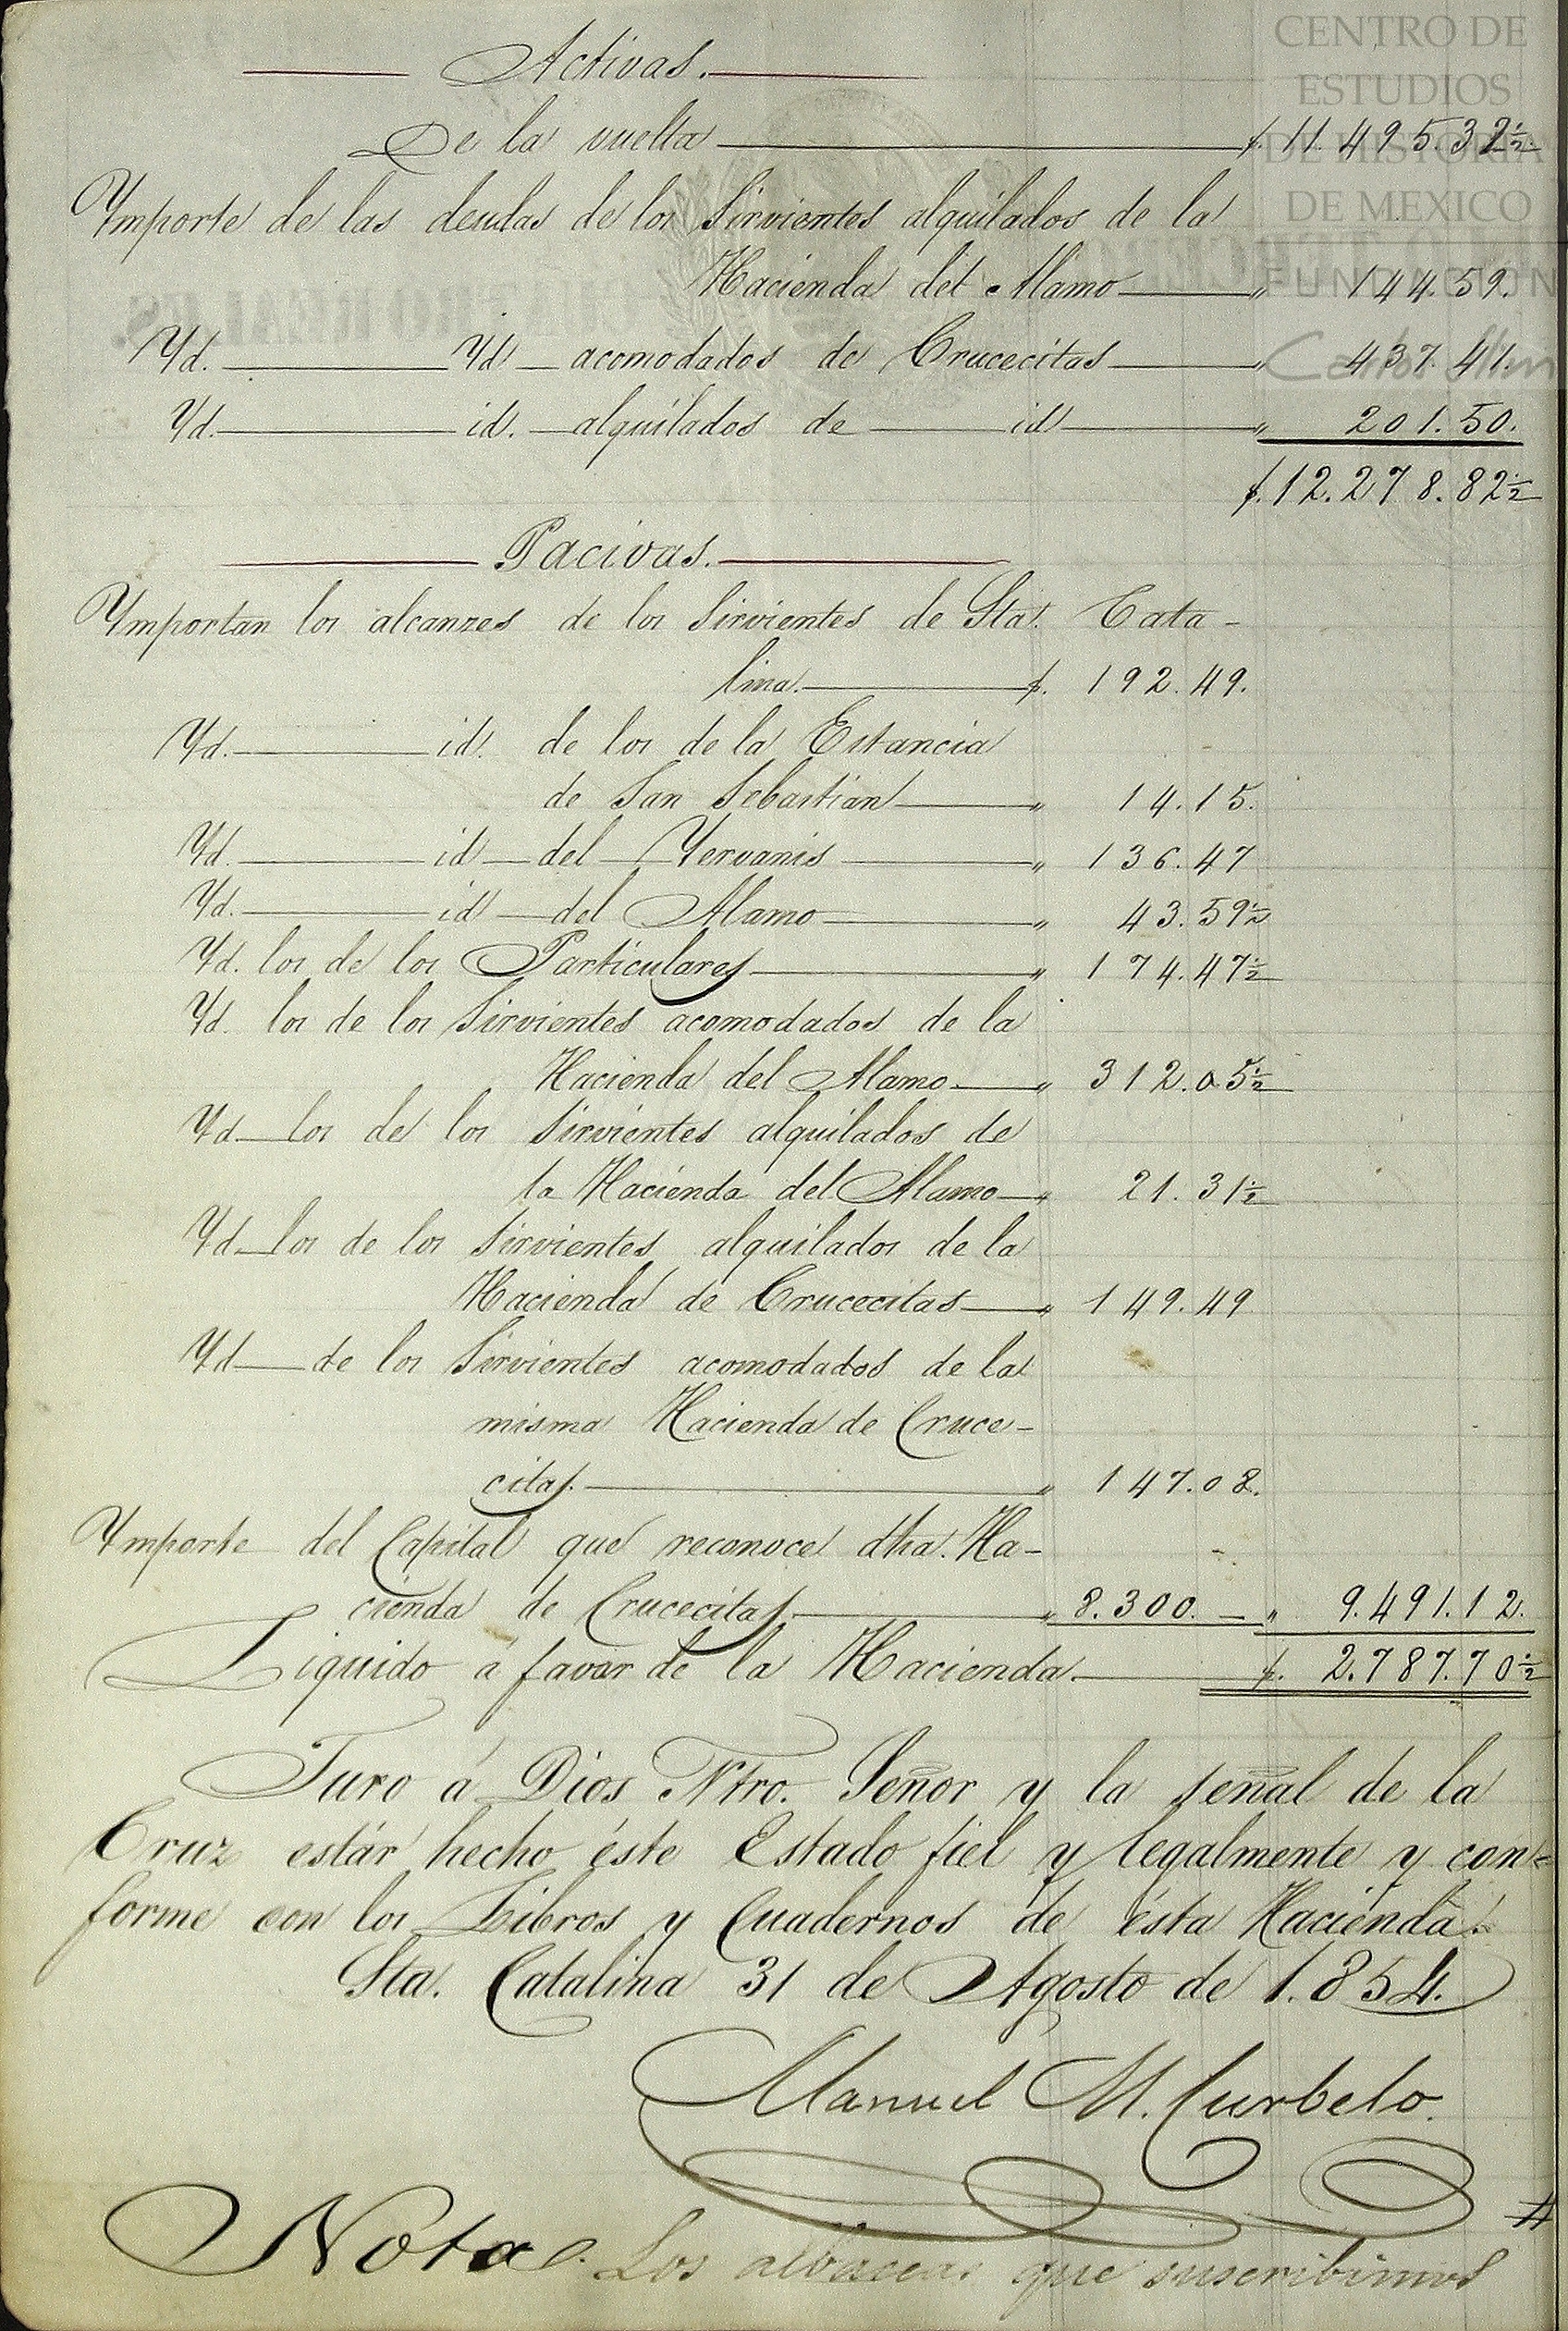 CENTRO DE
ESTUDIOS
DE HISTORIA
DE MEXICO
FUNDACIÓN
Carlos Slim
Activas.
De la vuelta $. 11.495.32½
Ymporte de las deudas de los Sirvientes alquilados de la
Hacienda del Alamo " 144.59.
Yd. Yd acomodados de Crucecitas " 437.41.
Yd. id. alquilados de id " 201.50.
$. 12.278.82½
Pacivas.
Ymportan los alcanzes de los Sirvientes de Sta. Cata-
lina. $. 192.49.
Yd. id. de los de la Estancia
de San Sebastian " 14.15.
Yd. id del Yervanis " 136.47
Yd. id del Alamo " 43.59½
Yd. los de los Particulares " 174.47½
Yd. los de los Sirvientes acomodados de la
Hacienda del Alamo " 312.05½
Yd los de los Sirvientes alquilados de
la Hacienda del Alamo " 21.31½
Yd los de los Sirvientes alquilados de la
Hacienda de Crucecitas " 149.49
Yd de los Sirvientes acomodados de la
misma Hacienda de Cruce-
citas. " 147.08.
Ymporte del Capital que reconoce dha. Ha-
cienda de Crucecitas " 8.300. — " 9.491.12.
Liquido á favor de la Hacienda. $. 2.787.70½
Juro á Dios Ntro. Señor y la señal de la
Cruz estár hecho éste Estado fiel y legalmente y con=
forme con los Libros y Cuadernos de ésta Hacienda.
Sta. Catalina 31 de Agosto de 1.854.
Manuel M. Curbelo.
Nota. Los albaceas que suscribimos